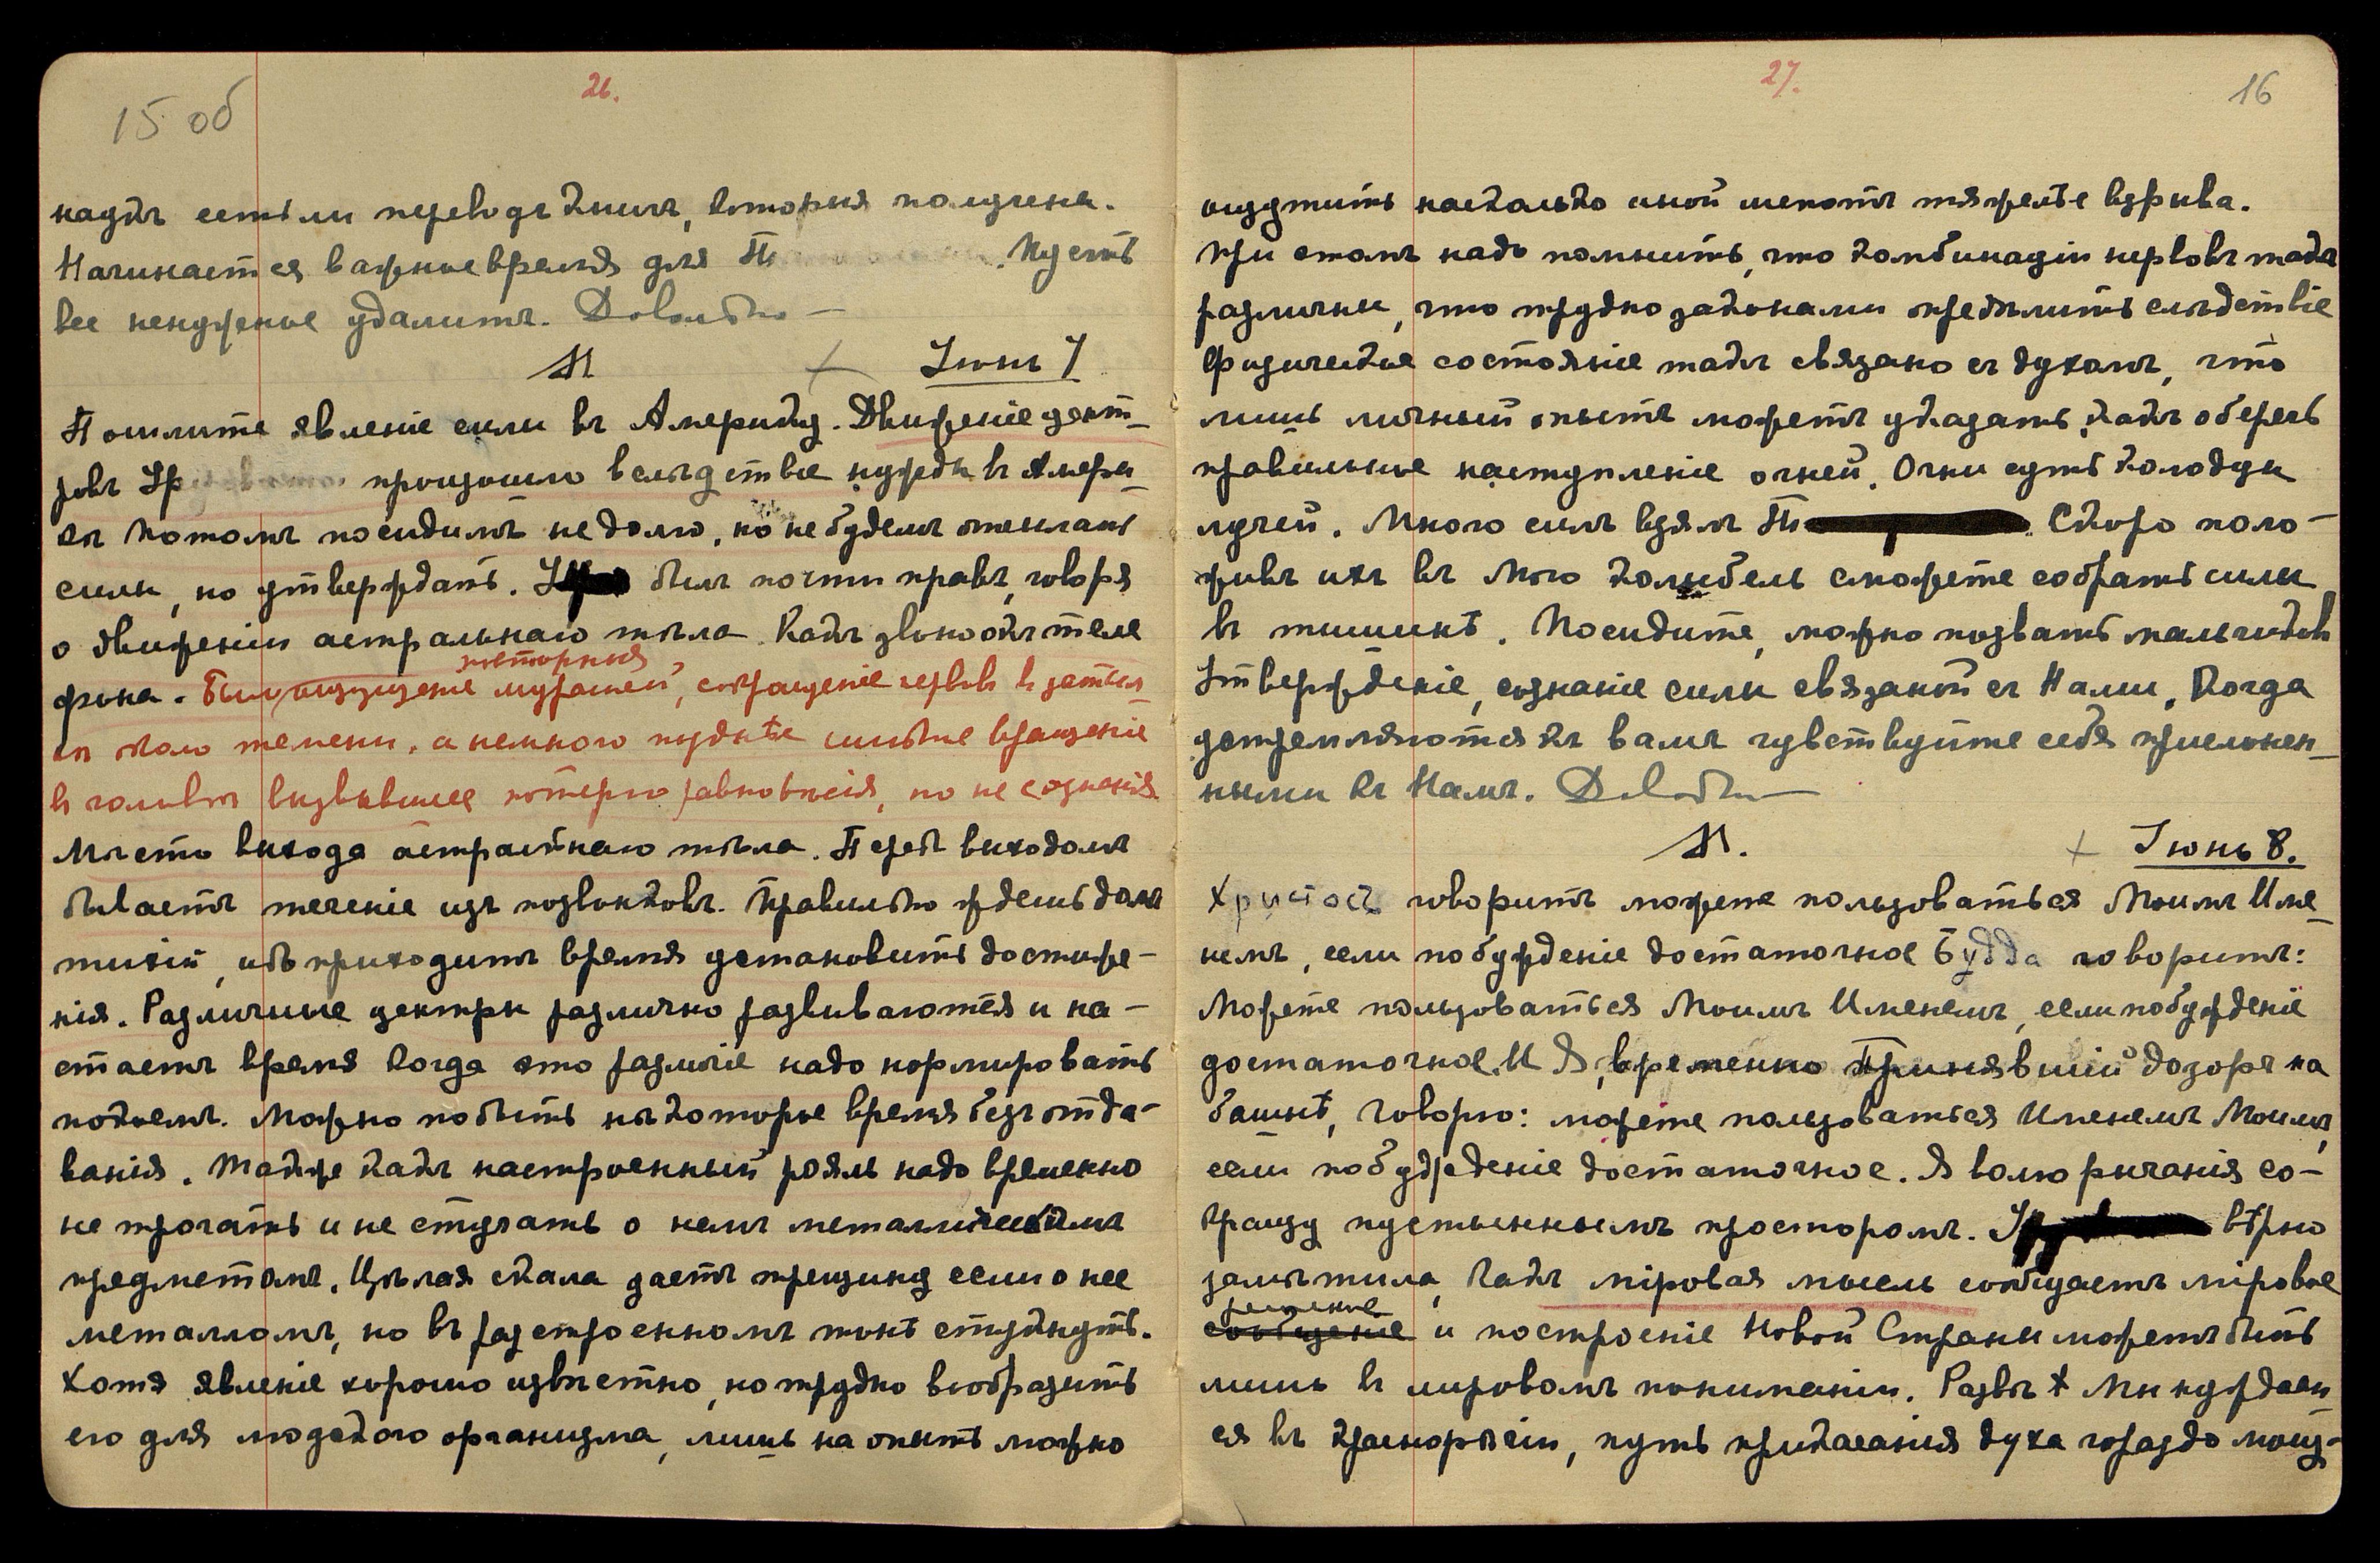 15 об
26.
надъ есть ли переводъ книгъ, которыя получены.
Начинается важное время для Пусть
все ненужное удалитъ. Довольно —
М + Іюнь 7
Пошлите явленіе силы въ Америку. Движеніе цент-
ровъ Ур произошло вслѣдствіе нужды въ Амери-
кѣ Потомъ посидимъ недолго, но не будемъ отнимать
силы, но утверждать. былъ почти правъ, говоря
о движеніи астральнаго тѣла. Какъ звонокъ теле
фона. Было ощущеніе муравьевъ, сокращеніе нервовъ в затыл
кѣ около темени, а немного позднѣе сильное вращеніе
въ головѣ вызвавшее потерю равновѣсія, но не сознанія.
Мѣсто выхода астральнаго тѣла. Передъ выходомъ
бываетъ теченіе изъ позвонковъ. Правильно ждешь дома
тихій, ибо приходитъ время установить достиже-
нія. Различные центры различно развиваются и на-
стаетъ время когда это различіе надо нормировать
покоемъ. Можно побыть нѣкоторое время безъ отда-
ванія. Также какъ настроенный рояль надо временно
не трогать и не стучать о немъ металлическимъ
предметомъ. Цѣлая скала даетъ трещину если о нее
металломъ, но въ разстроенномъ тонѣ стукнуть.
Хотя явленіе хорошо извѣстно, но трудно вообразить
его для людского организма, лишь на опытѣ можно
27.
16
ощутить насколько иной шепотъ тяжелѣе взрыва.
При этомъ надо помнить, что комбинаціи нервовъ такъ
различны, что трудно законами опредѣлить слѣдствіе
Физическое состояніе такъ связано съ духомъ, что
лишь личный опытъ можетъ указать, какъ оберечь
правильное наступленіе огней. Огни суть колодцы
лучей. Много силъ взялъ Скоро поло-
живъ ихъ въ Мою колыбель сможете собрать силы
въ тишинѣ. Посидите, можно позвать мальчиковъ
Утвержденіе, сознаніе силы связаной съ Нами. Когда
устремляются къ вамъ чувствуйте себя прислонен-
ными къ Намъ. Довольно —
М. + Іюнь 8.
Христосъ говоритъ можете пользоваться Моимъ Име-
немъ, если побужденіе достаточное Будда говоритъ:
Можете пользоваться Моимъ Именемъ, если побужденіе
достаточное. И Я, временно Принявшій дозоръ на
башнѣ, говорю: можете пользоваться Именемъ Моимъ,
если побужденіе достаточное. Я волю рычанія со-
кращу пустыннымъ просторомъ. вѣрно
замѣтила, какъ міровая мысль сообщаетъ міровое
решеніе
сообщеніе и построеніе Новой Страны можетъ быть
лишь въ мировомъ пониманіи. Развѣ Мы нуждаем
ся въ краснорѣчіи, путь прикасанія духа гораздо мощ-